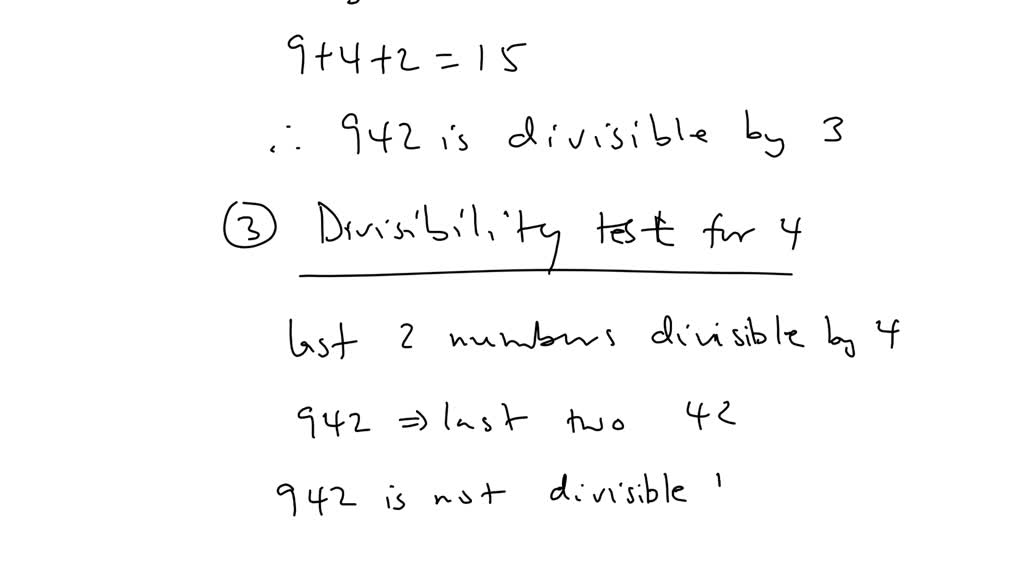 9+4+2=15
∴ 942 is divisible by 3
③ Divisibility test for 4
last 2 numbers divisible by 4
942 ⇒ last two 42
942 is not divisible